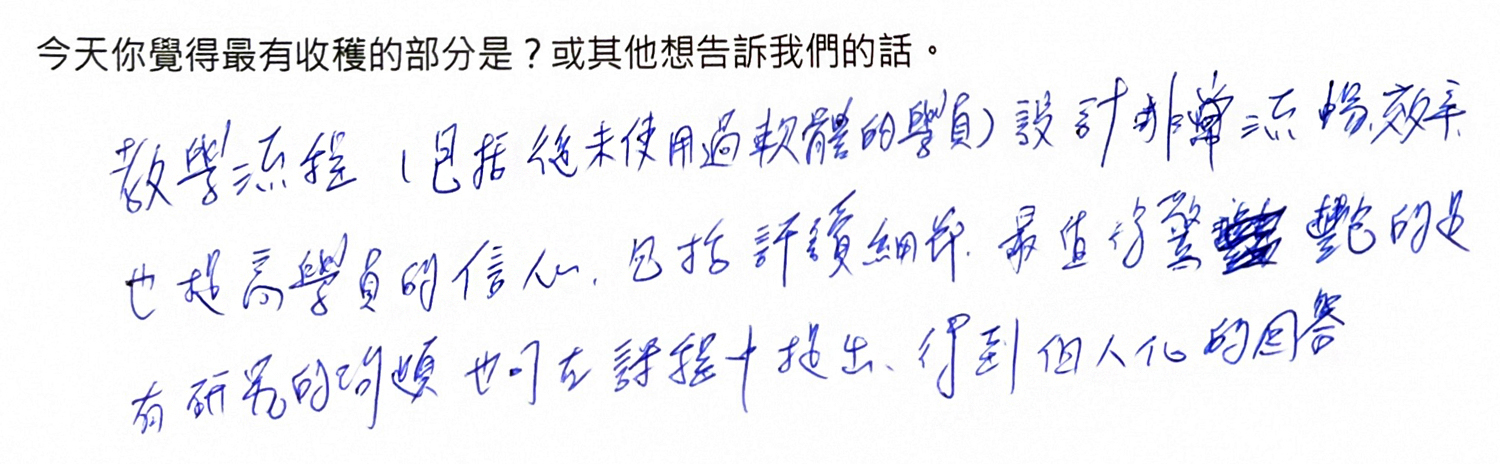 今天你覺得最有收穫的部分是？或其他想告訴我們的話。
教學流程（包括從未使用過軟體的學員）設計非常流暢.效率
也提高學員的信心.包括許多細節.最值得驚艷的是
有研究的問題也可在課程中提出、得到個人化的回答